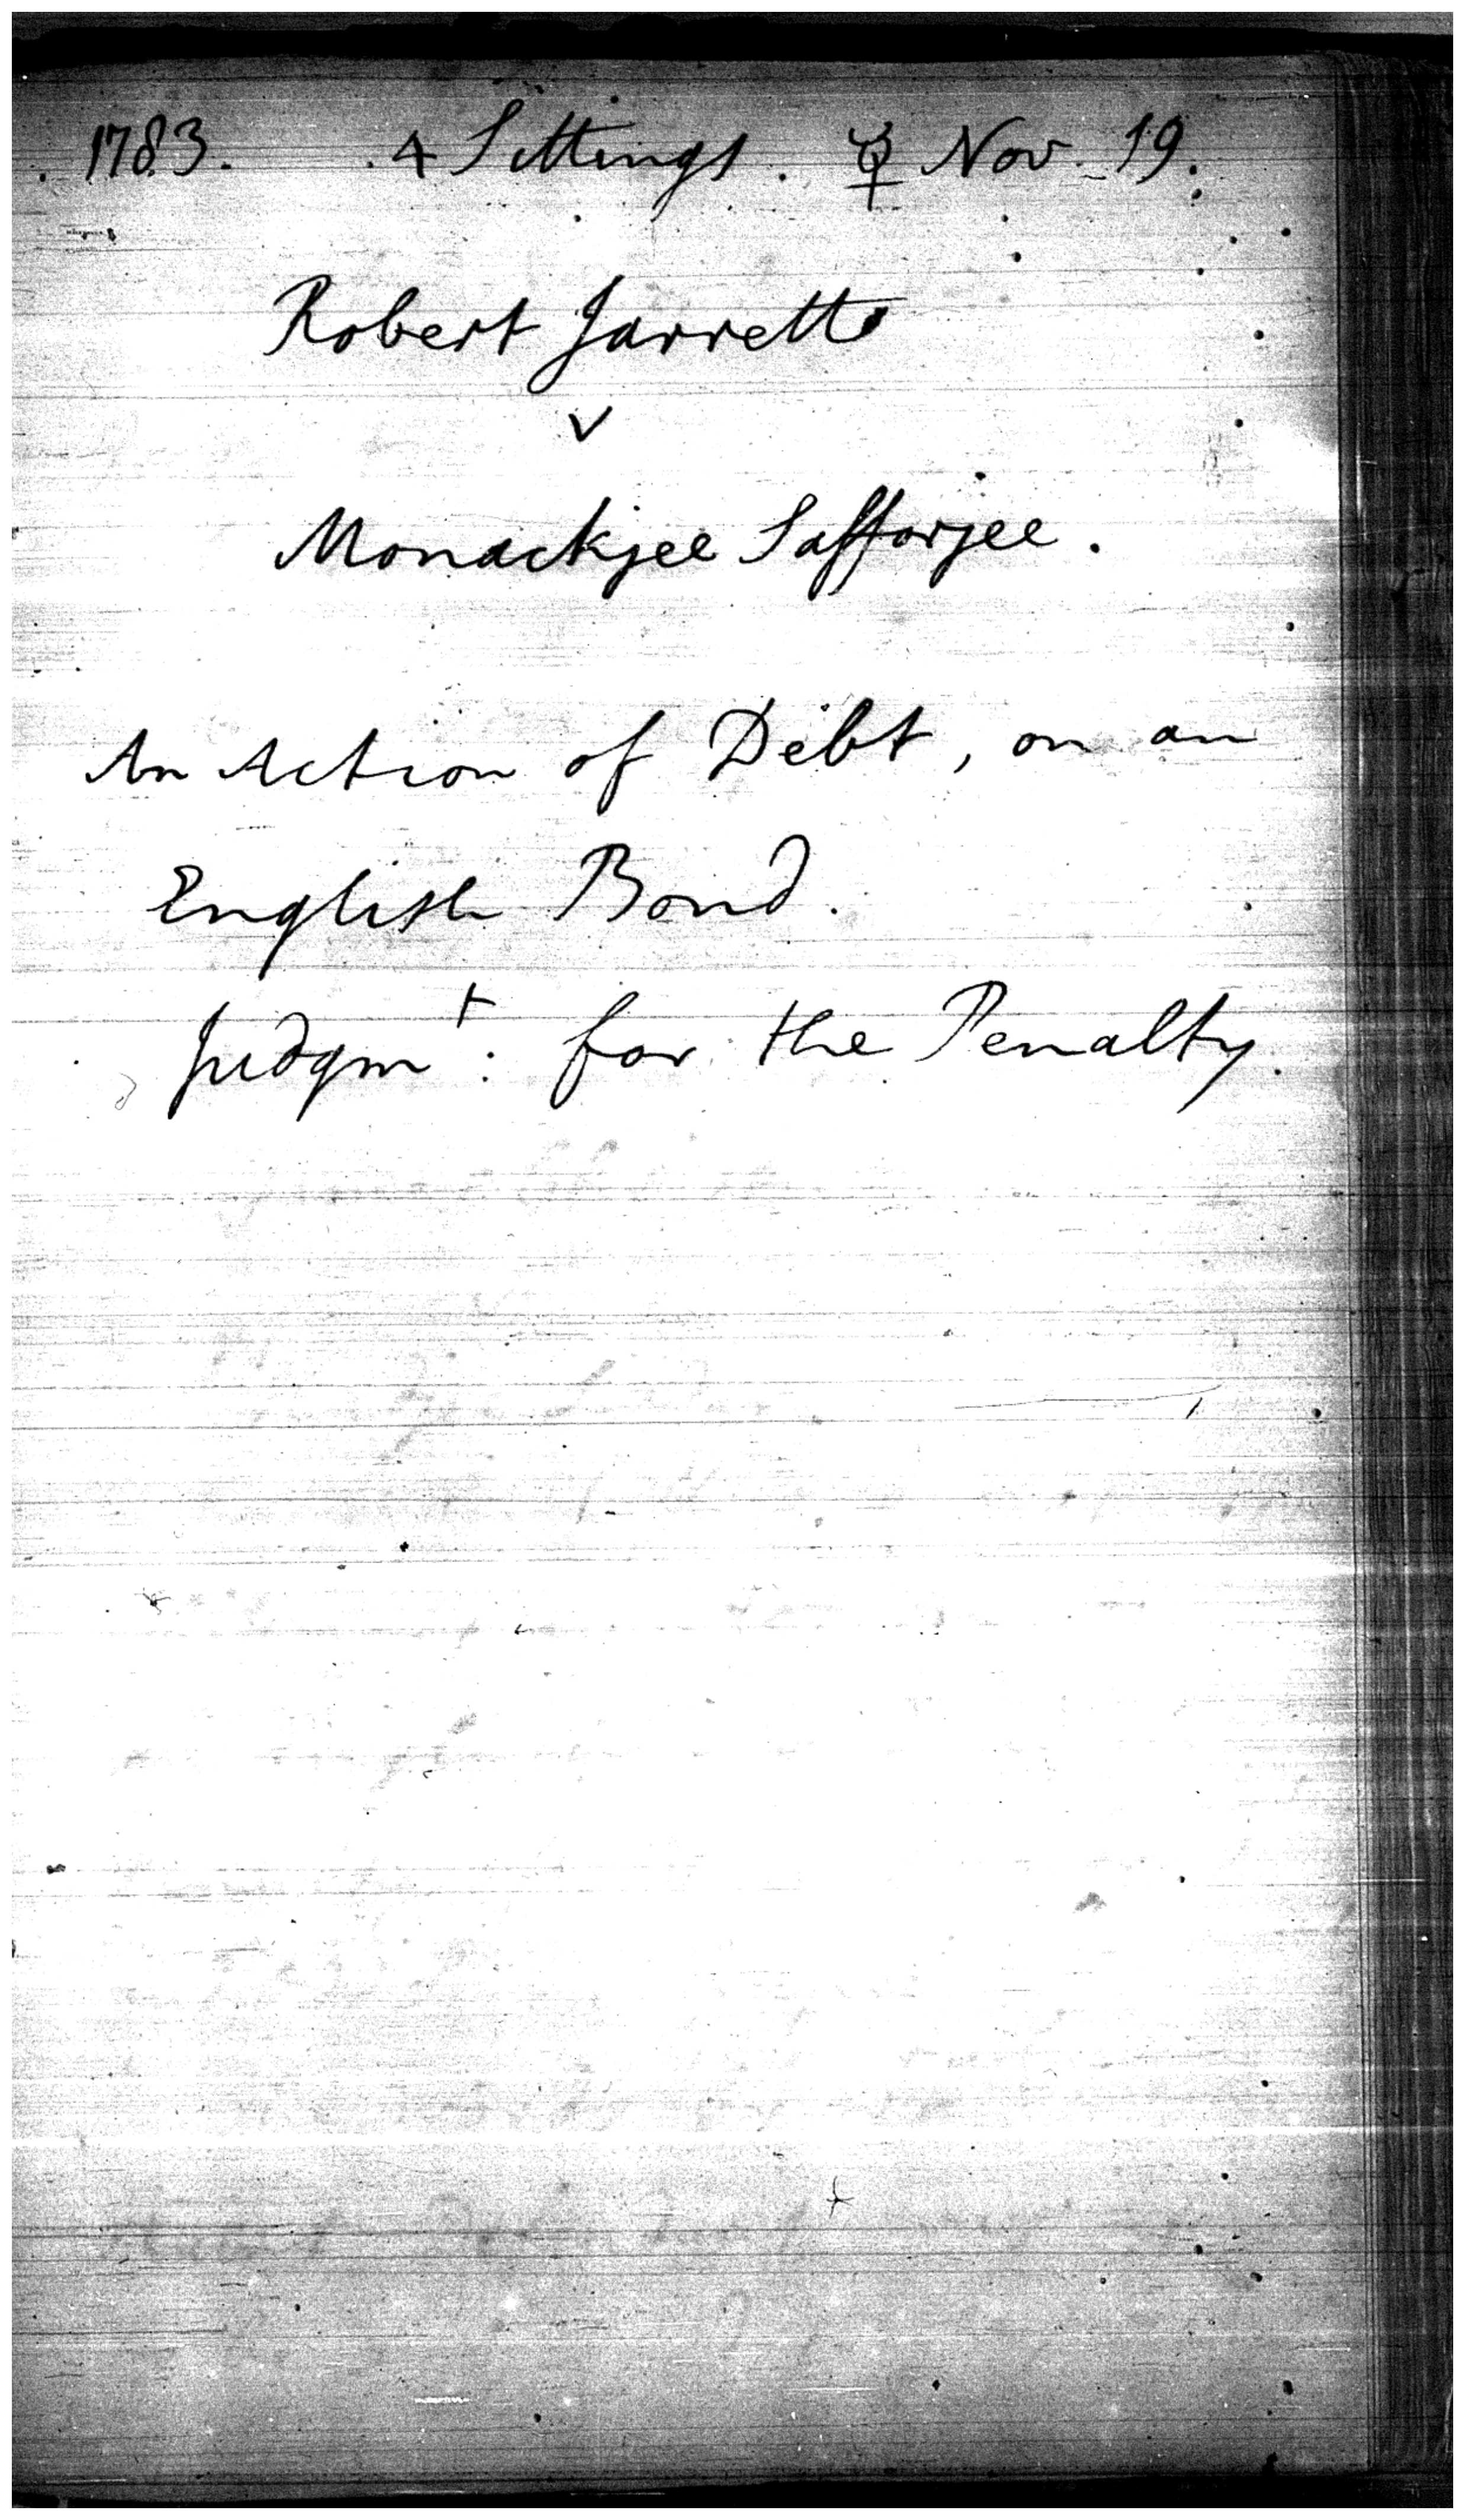 1783. 4 Sittings. ☿ Nov. 19.
Robert Jarrett
v
Monackjee Safforjee.
An Action of Debt, on an
English Bond.
Judgmt: for the Penalty.